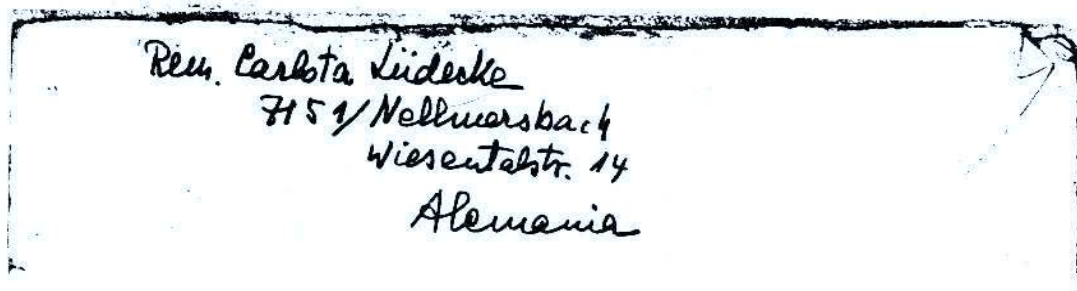 Rem. Carlota Lüdecke
7151/Nellmersbach
Wiesentalstr. 14
Alemania